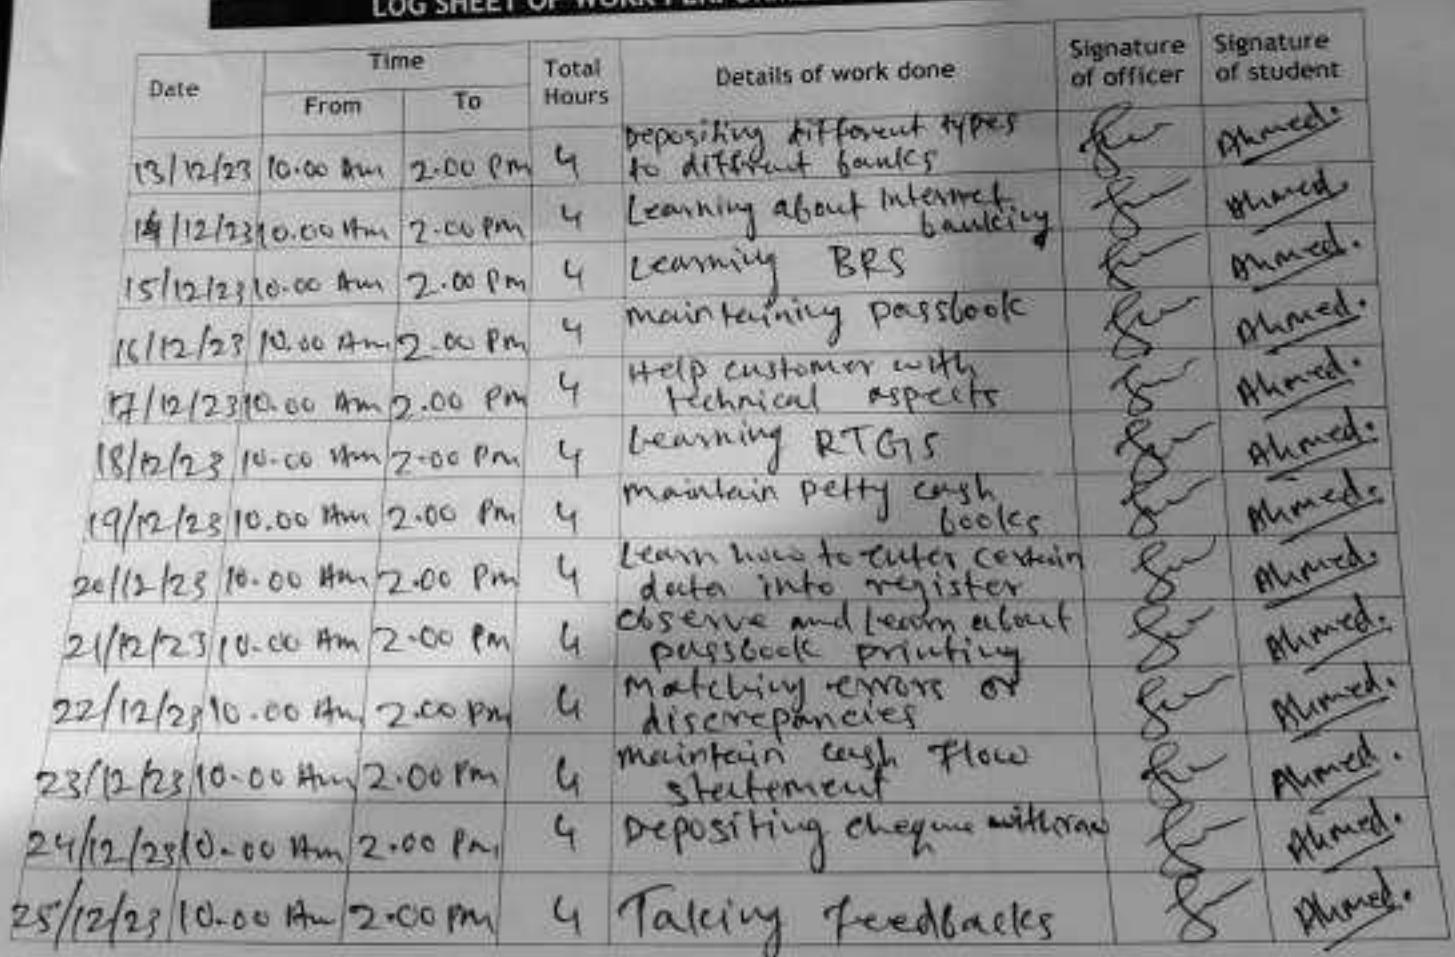 LOG SHEET OF WORK
Date Time Total Hours Details of work done Signature of officer Signature of student
From To
13/12/23 10.00 Am 2.00 Pm 4 Depositing different types to different banks Ahmed.
14/12/23 10.00 Am 2.00 Pm 4 Learning about Internet banking Ahmed.
15/12/23 10.00 Am 2.00 Pm 4 Learning BRS Ahmed.
16/12/23 10.00 Am 2.00 Pm 4 maintaining passbook Ahmed.
17/12/23 10.00 Am 2.00 Pm 4 Help customer with technical aspects Ahmed.
18/12/23 10.00 Am 2.00 Pm 4 Learning RTGS Ahmed.
19/12/23 10.00 Am 2.00 Pm 4 maintain petty cash books Ahmed.
20/12/23 10.00 Am 2.00 Pm 4 Learn how to enter certain data into register Ahmed.
21/12/23 10.00 Am 2.00 Pm 4 observe and Learn about passbook printing Ahmed.
22/12/23 10.00 Am 2.00 pm 4 Matching errors or discrepancies Ahmed.
23/12/23 10.00 Am 2.00 Pm 4 maintain cash Flow statement Ahmed.
24/12/23 10.00 Am 2.00 Pm 4 Depositing cheque Ahmed.
25/12/23 10.00 Am 2.00 PM 4 Taking feedbacks Ahmed.